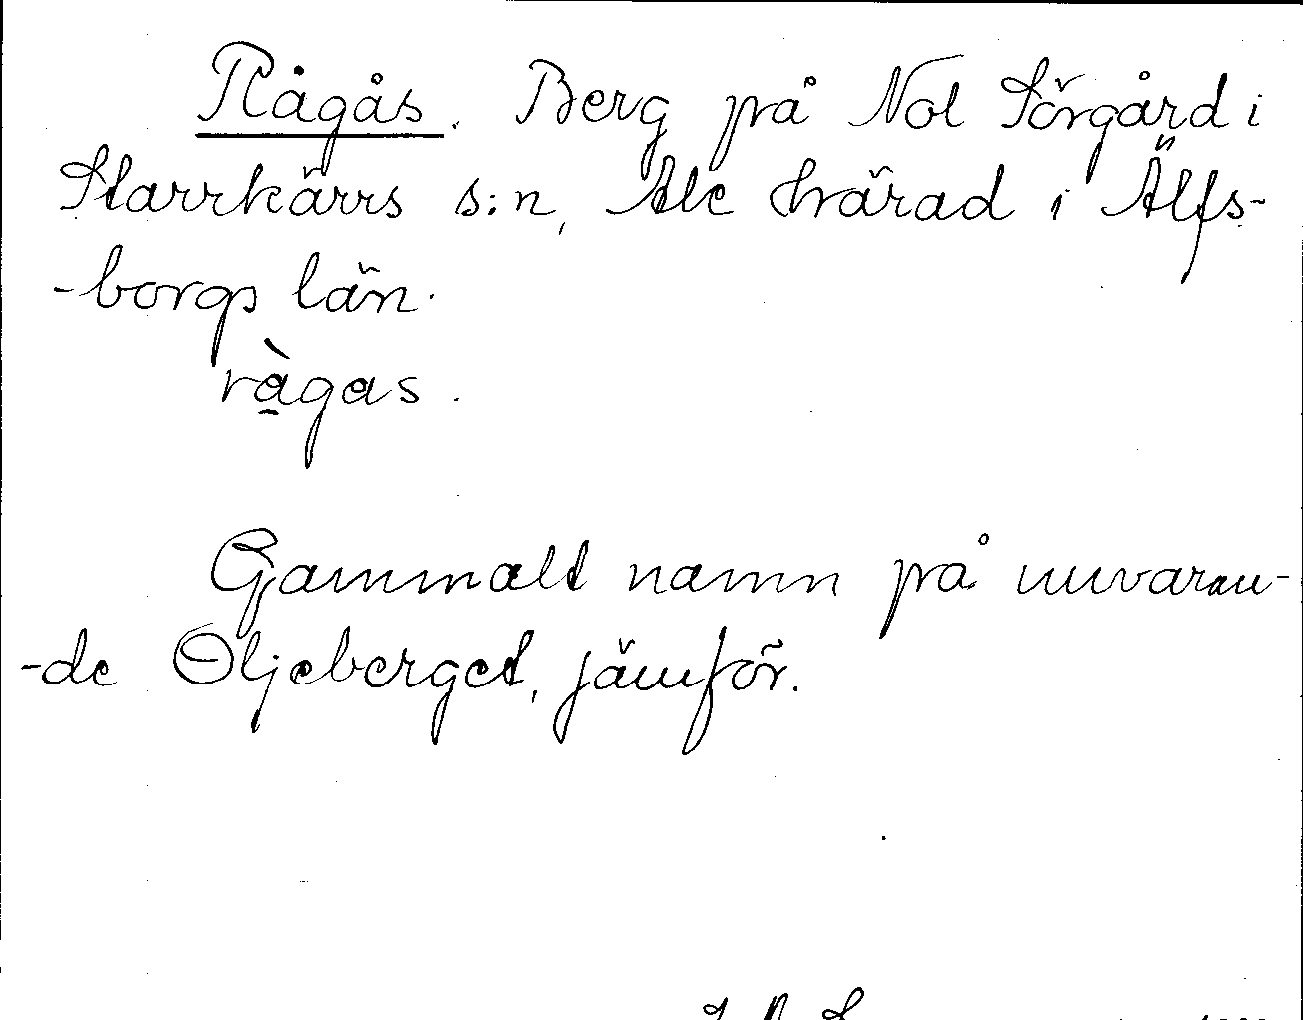 Rågås. Berg på Nol Sörgård i
Starrkärrs s:n, Ale härad i Älfs-
-borgs län.
ràgas.
Gammalt namn på nuvaran-
-de Oljeberget, jämför.